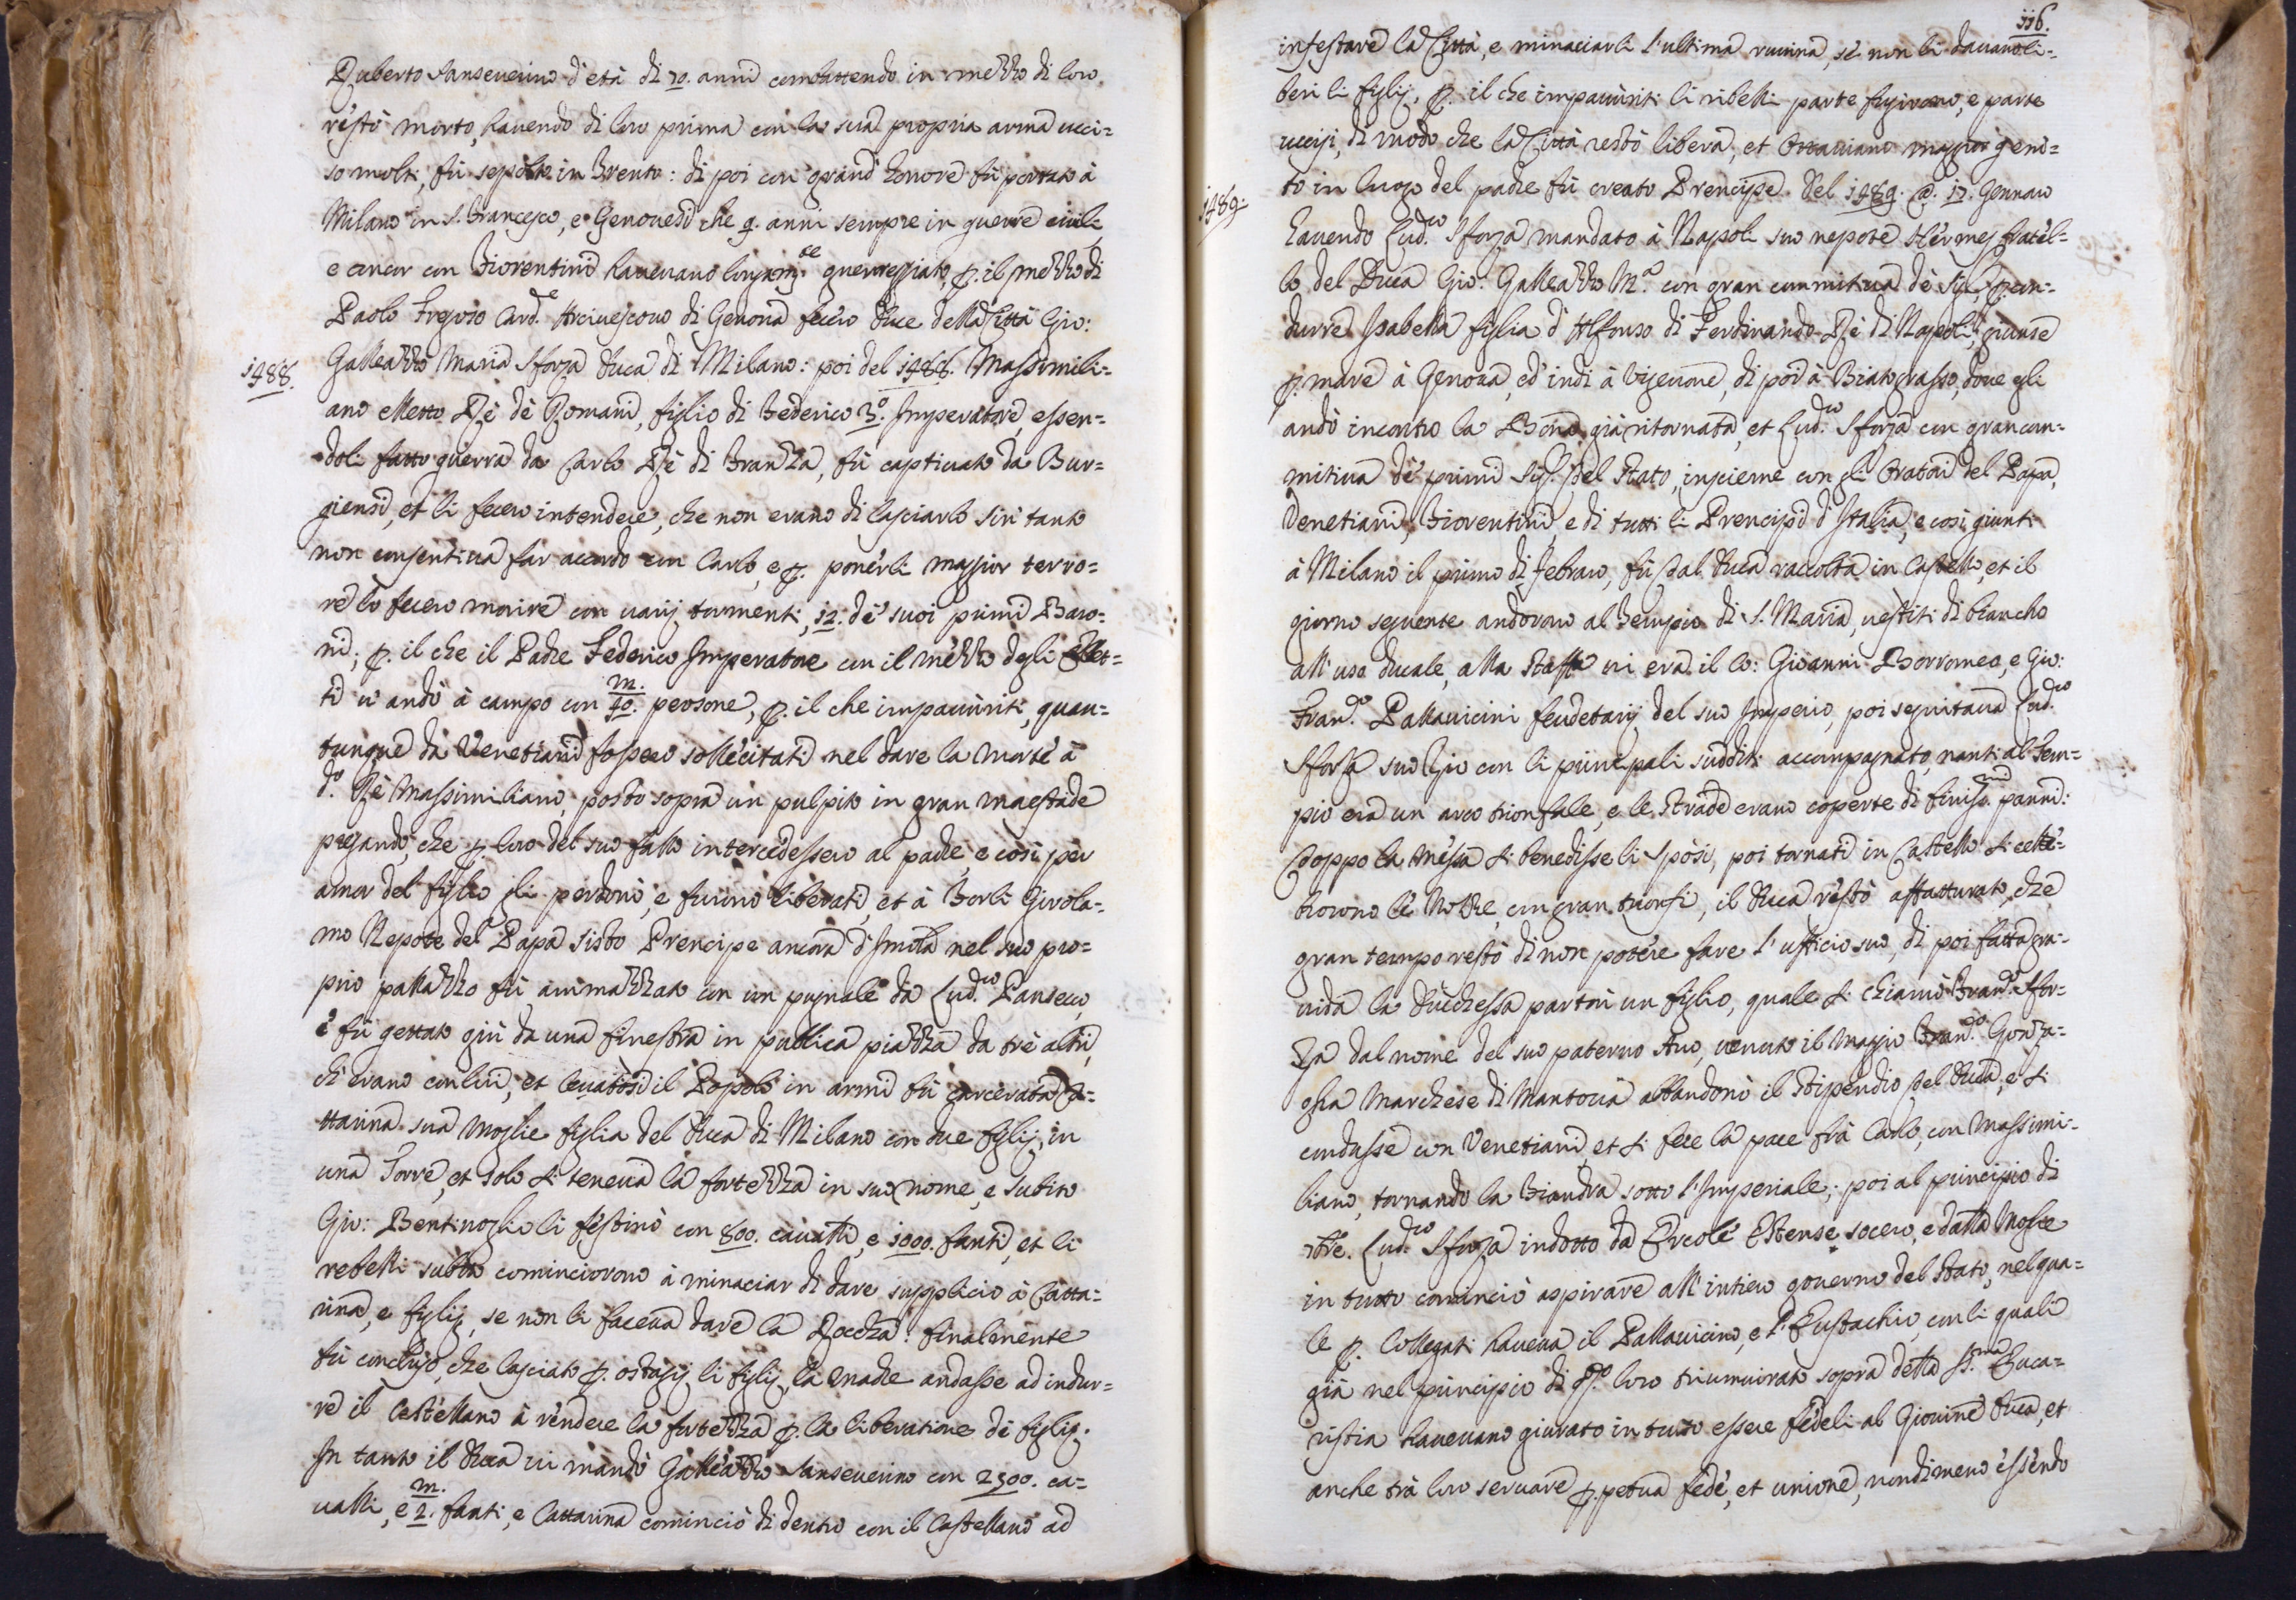 Ruberto Sanseverino d'età di 70. anni combattendo in mezzo di loro
restò morto, havendo di loro prima con la sua propria arma ucci=
so molti, fù sepolto in Trento: di poi con grand'honore fù portato à
Milano in S. Francesco, e Genovesi che 9. anni sempre in guerre civili
e ancor con Fiorentini havevano longam.te guerreggiato, p. il mezzo di
Paolo Fregoso Card.e Arcivescovo di Genova fecero Duce della Città Gio:
1488.
Galleazzo Maria Sforza Duca di Milano: poi del 1488. Massimili=
ano eletto Rè dè Romani, figlio di Federico 3.o Imperatore, essen=
doli fatto guerra da Carlo Rè di Franza, fù captivato da Bur=
giensi, et li fecero intendere, che non erano di lasciarlo sin tanto
non consentiva far accordo con Carlo, e p. ponerli maggior terro=
re lo fecero morire con varij tormenti, 12. de' suoi primi Baro=
ni; p. il che il Padre Federico Imperatore con il mezzo degli Elet=
ti v'andò à campo con 40.m. persone, p. il che impauriti, quan=
tunque da Venetiani fossero sollecitati nel dare la morte à
d.o Rè Massimiliano, posto sopra un pulpito in gran maestade
pregando, che p. loro del suo fallo intercedessero al padre, e così per
amor del figlio gli perdonò, e furino liberati, et à Forlì Girola=
mo Nepote del Papa Sisto Prencipe ancora d'Imola nel suo pro=
prio pallazzo fù ammazzato con un pugnale da Lud.co Panseco,
è fù gettato giù da una finestra in publica piazza da trè altri,
ch'erano con lui, et levatosi il Popolo in armi fù carcerata Ca=
ttarina sua moglie figlia del Duca di Milano con due figlij, in
una Torre, et solo si teneva la fortezza in suo nome, e subito
Gio: Bentivoglio li festinò con 800. cavalli, e 1000. fanti, et li
rebelli subito cominciorono à minaciar di dare supplicio à Catta=
rina, e figlij, se non li faceva dare la Roccha: finalmente
fù concluso, che lasciato p. ostagij li figlij, la madre andasse ad indur=
re il Castellano à rendere la fortezza p. la liberatione dè figlij.
In tanto il Duca vi mandò Galleazzo Sanseverino con 2500. ca=
valli, è 2.m. fanti, e Cattarina cominciò di dentro con il Castellano ad
116.
infestare la Città, e minaciarli l'ultima ruuina, sè non li davano li=
beri li figlij, p. il che impauriti li ribelli parte fugirono, e parte
uccisi, di modo che la Città restò libera, et Ottaviano maggior geni=
to in luogo del padre fù creato Prencipe. Nel 1489. @. 17. Gennaro
1489.
havendo Lud.co Sforza mandato à Napoli suo nepote Hermes fratel=
lo del Duca Gio: Galleazzo M.a con gran commitiva dè Sig.ri p. con=
durre Isabella figlia d'Alfonso di Ferdinando Rè di Napoli, giunse
p. mare à Genova, ed'indi à Vigevone, di poi à Biatograsso, dove gli
andò incontro la Bona già ritornata, et Lud.co Sforza con gran com=
mitiva dè primi Sig.ri del Stato, insieme con gli Oratori del Papa,
Venetiani, Fiorentini, e di tutti li Prencipi d'Italia, e così giunti
à Milano il primo di Febraro, fù dal Duca raccolta in Castello, et il
giorno seguente andorono al Tempio di S. Maria, vestiti di biancho
all'uso ducale, alla staffa vi era il Co: Gioanni Borromeo, e Gio:
Fran.co Pallavicini feudetarij del suo Imperio, poi seguitava Lud.co
Sforza suo Zio con li principali sudditi accompagnato, nanti al Tem=
pio era un arco trionfale, e le strade erano coperte di finiss.mi panni:
doppo la messa si benedisse li sposi, poi tornati in Castello si cele=
brorono le Nozze, con gran trionfi, il Duca restò affatturato, che
gran tempo restò di non potere fare l'ufficio suo, di poi fatta gra=
vida la Ducchessa partorì un figlio, quale si chiamò Fran.co Sfor=
za dal nome del suo paterno Avo, venuto il Maggio Fran.co Gonza=
gha Marchese di Mantova abbandonò il stipendio del Duca, e si
condusse con Venetiani, et si fece la pace frà Carlo, con Massimi=
liano, tornando la Fiandra sotto l'Imperiale; poi al principio di
7bre. Lud.co Sforza indotto da Ercole Estense socero, e dalla Moglie
in tutto cominciò aspirare all'intiero governo del Stato, nel qua=
le p. Collegati haveva il Pallavicino, e l'Eustachio, con li quali
già nel principio di q.to loro triumvirato sopra della SS.ma Euca=
ristia havevano giurato in tutto essere fedeli al Giovine Duca, et
anche trà loro servare p.petua fede, et unione, nondimeno essendo